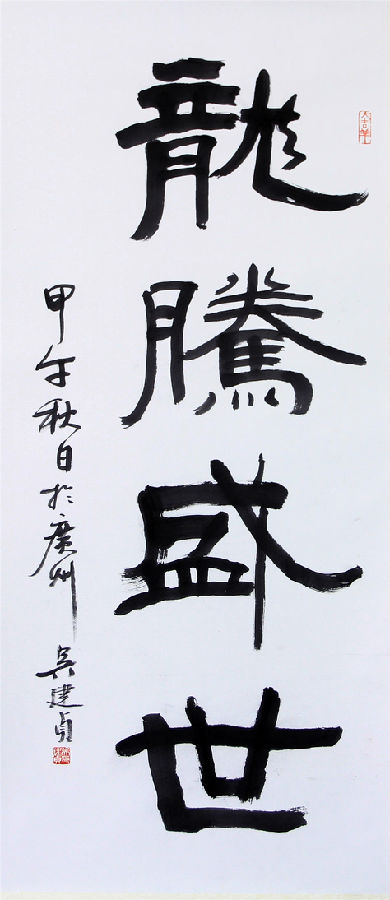 龍騰盛世
甲午秋日於廣州
吳建貞